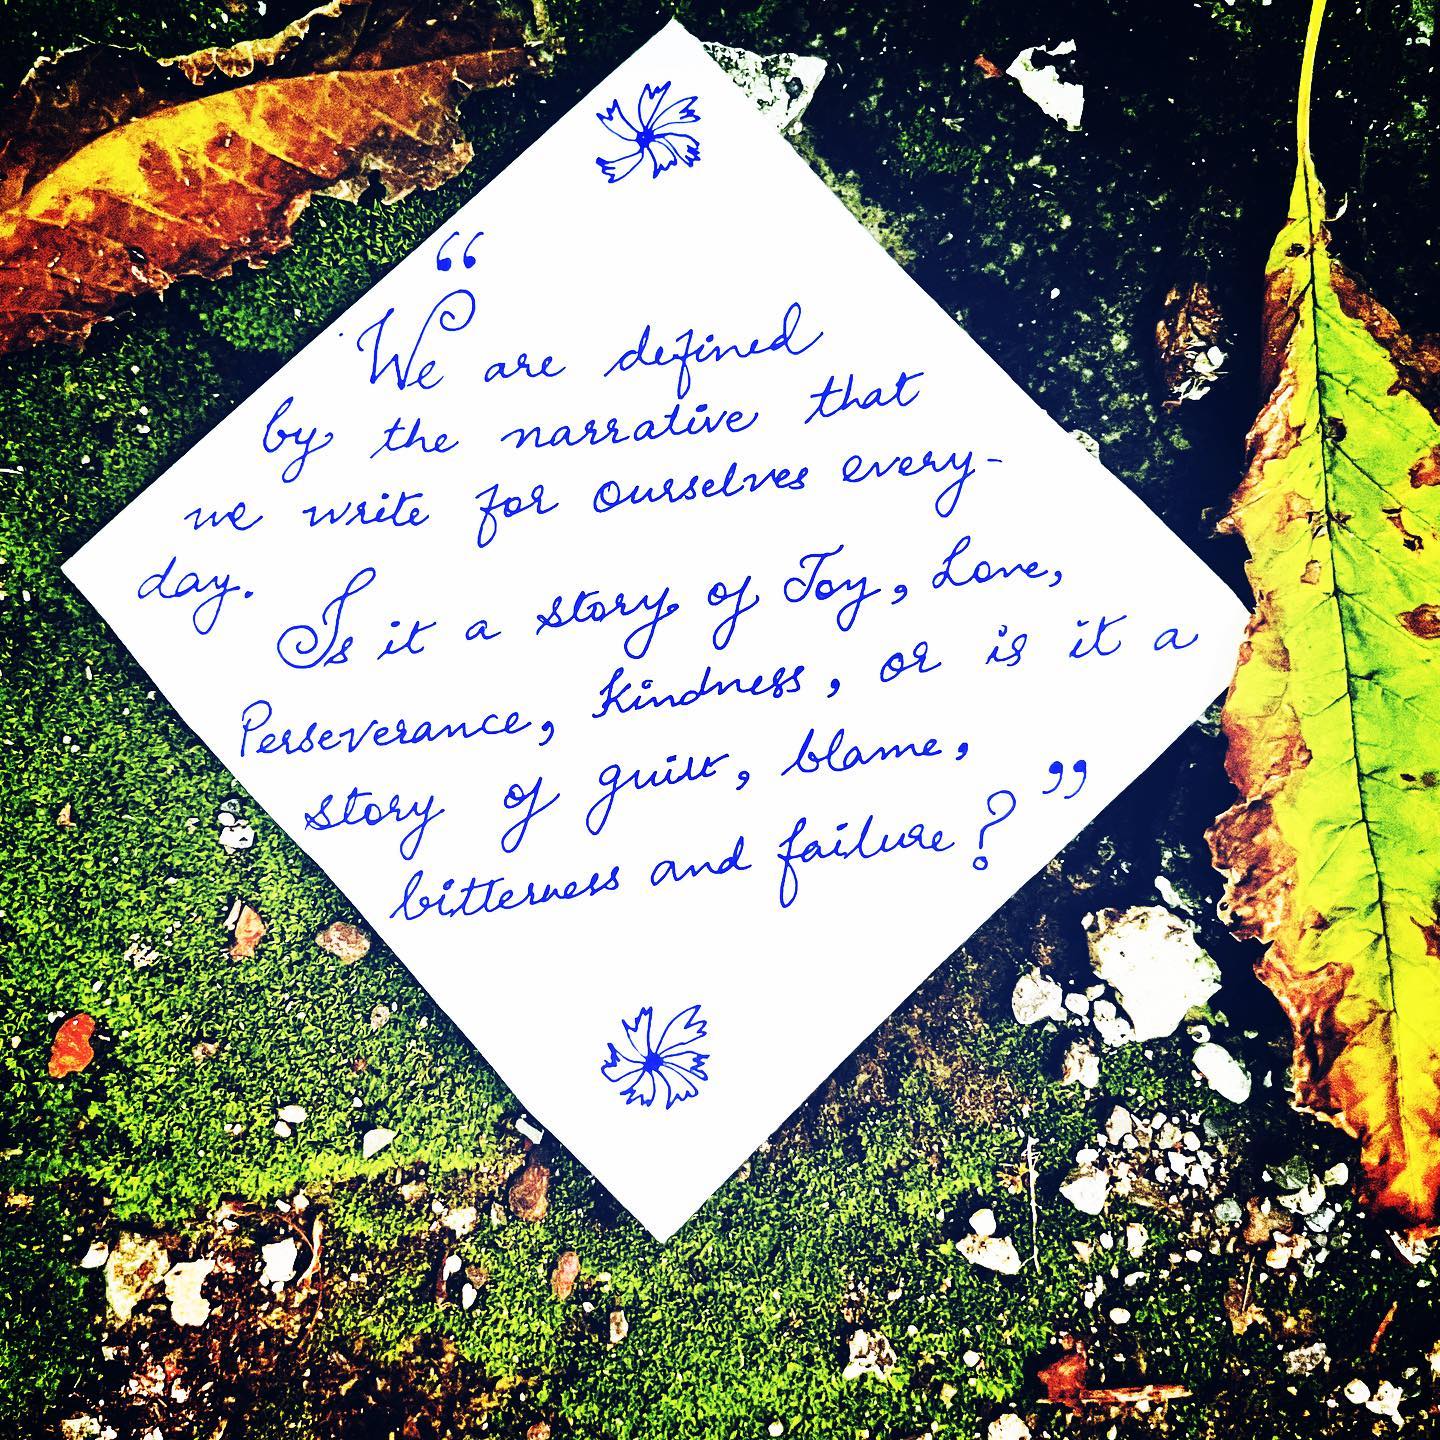 “
We are defined
by the narrative that
we write for ourselves every-
day.
Is it a story of Joy, Love,
Perseverance, kindness, or is it a
story of guilt, blame,
bitterness and failure? ”